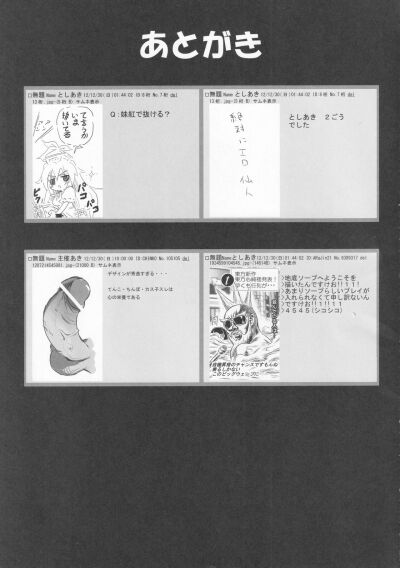 あとがき
□無題 Name としあき 12/12/30(日)01:44:02
サムネ表示
てるうが
いま
はいてる
パコ
パコ
Q:妹紅で抜ける?
□無題 Name としあき 12/12/30(日)01:44:02
サムネ表示
絶対にエロ仙人
としあき 2ごう
でした
□無題 Name 主催あき 12/12/30(日)
サムネ表示
デザインが秀逸すぎる・・・
てんこ・ちんぽ・カス子スレは
心の栄養である
□無題 Name としあき 12/12/30(日)01:44:02
サムネ表示
東方新作
東方心綺楼発表!
早くも任天が・・・
>地底ソープへようこそを
描いたんですけお!!11!
>あまりソープらしいプレイが
入れられなくて申し訳ないん
ですけお!!1!!11
>4545(シコシコ)
このビッグウェーブに